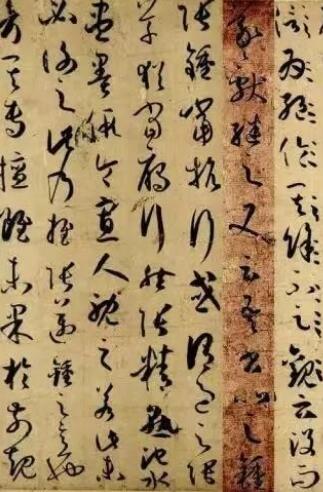 為絕倫其餘不足觀云沒而
羲獻繼之又云吾書比之鍾
張鍾當抗行或謂過之張
草猶當雁行然張精熟池水
盡墨假令寡人耽之若此未
必謝之此乃推張邁鍾之意
考其專擅雖未果於前規